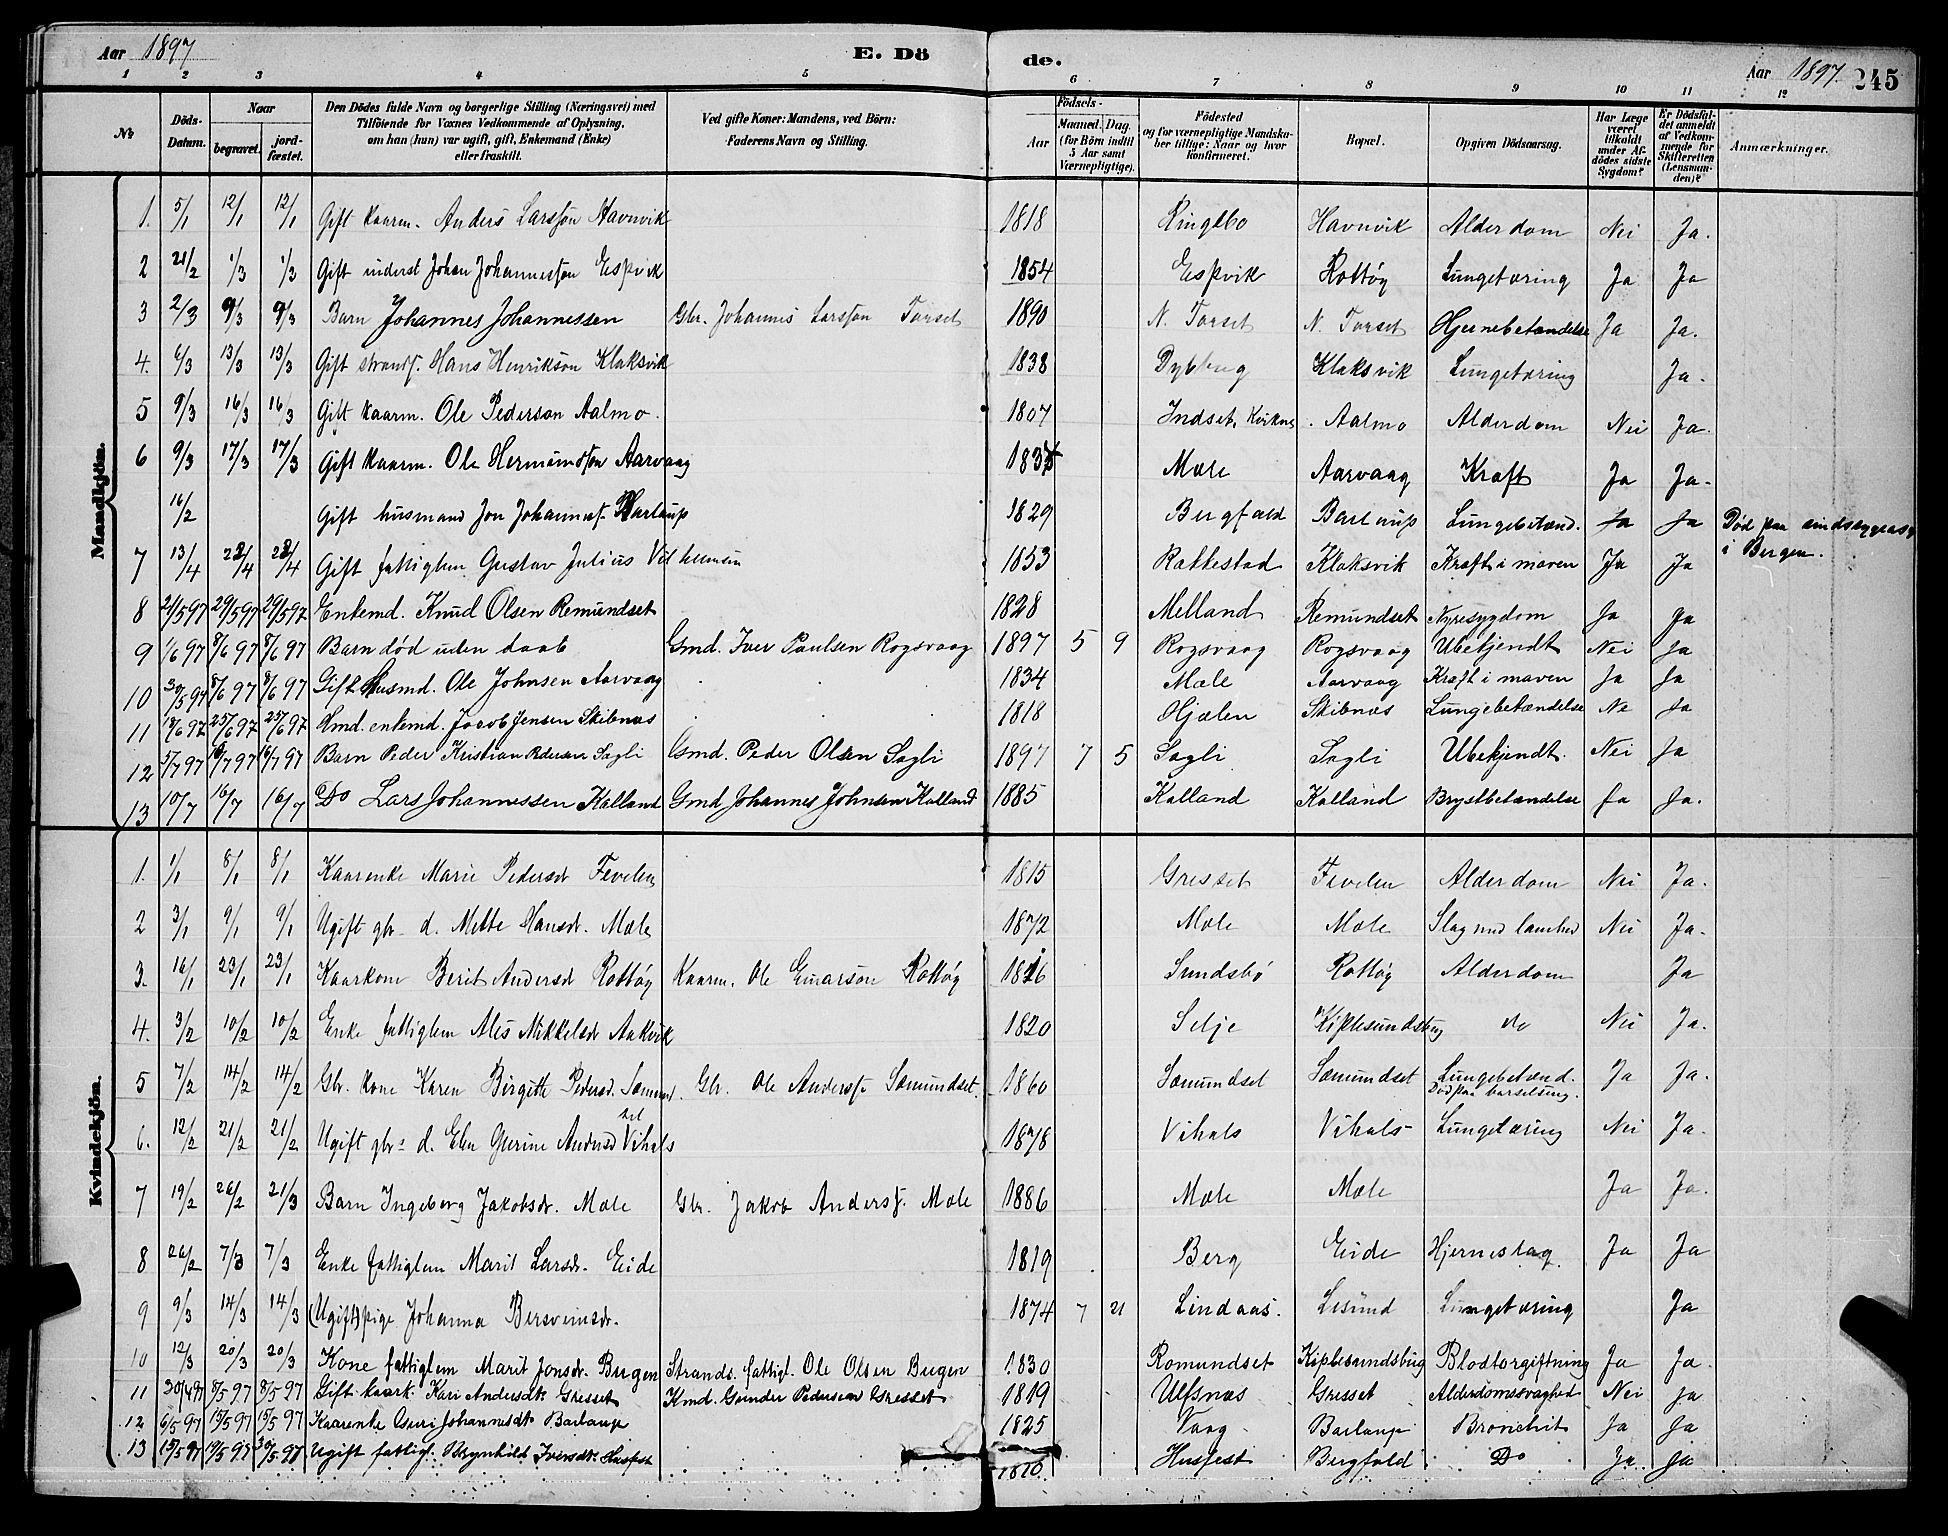 Aar 1897 E. Döde. Aar 1897. 245
1 2 3 4 5 6 7 8 9 10 11 12
No
Döds-Datum.
Naar
begravet.
jordfæstet.
Den Dödes fulde Navn og borgerlige Stilling (Næringsvei) med
Tilföiende for Voxnes Vedkommende af Oplysning,
om han (hun) var ugift, gift, Enkemand (Enke)
eller fraskilt.
Ved gifte Koner: Mandens, ved Börn:
Faderens Navn og Stilling.
Födsels-
Aar
Maaned. Dag.
(for Börn indtil
5 Aar samt
Værnepligtige).
Födested
og for værnepligtige Mandskaber tillige: Naar og hvor
konfirmeret.
Bopæl.
Opgiven Dödsaarsag.
Har Læge
været
tilkaldt
under Afdödes sidste
Sygdom?
Er Dödsfaldet anmeldt
af Vedkommende for
Skifteretten
(Lensmanden)?
Anmærkninger.
Mandkjön.
1. 5/1 12/1 12/1 Gift kaarm. Anders Larssøn Havnvik 1818 Ringebo Havnvik Alderdom Nei Ja.
2 21/2 1/3 1/3 Gift inderst Johan Johannessøn Espvik 1854 Espvik Rottøy Lungetæring Ja Ja
3 2/3 9/3 9/3 Barn Johannes Johannessen Gbr. Johannes Larssøn Torset 1890 N. Torset N. Torset Hjernebetændelse Ja Ja.
4. 6/3 13/3 13/3 Gift strands. Hans Henriksøn Klaksvik 1838 Klaksvik Lungetæring Ja.
5 9/3 16/3 16/3 Gift kaarm. Ole Pedersøn Aalmo. 1807 Indset, Kvikne Aalmo Alderdom Nei Ja.
6 9/3 17/3 17/3 Gift kaarm. Ole Hermundssøn Aarvaag Mæle Aarvaag Kræft Ja Ja.
16/2 Gift husmand Jon Johanness. Barlaup 1829 Bergfald Barlaup Lungebetænd. Ja Ja Død paa sindssygeasy
i Bergen.
7 13/4 22/4 22/4 Gift fattiglem Gustav Julius Vilhelmsen 1853 Rakkestad Klaksvik Kræft i maven Ja Ja
8 21/5 97 29/5 97 29/5 97 Enkemd. Knud Olsen Remundset 1828 Melland Remundset Nyresygdom Ja Ja
9 1/6 97 8/6 97 8/6 97 Barn død uden daab Gmd. Iver Paulsen Rogsvaag 1897 5 9 Rogsvaag Rogsvaag Ubekjendt Nei Ja
10 30/5 97 8/6 97 8/6 97 Gift Husmd. Ole Johnsen Aarvaag 1834 Mæle Aarvaag Kræft i maven Ja Ja
11 18/6 97 25/6 97 25/6 97 Hmd. enkemd. Jacob Jensen Skibnæs 1818 Hjælen Skibnæs Lungebetændelse Ne Ja
12 5/7 97 16/7 97 16/7 97 Barn Peder Kristian Pedersen Sagli Gmd. Peder Olsen Sagli 1897 7 5 Sagli Sagli Ubekjendt. Nei Ja
13 10/7 16/7 16/7 Do Lars Johannessen Kalland Gmd Johannes Johnsen Kalland 1885 Kalland Kalland Brystbetændelse Ja Ja.
Kvindekjön.
1. 1/1 8/1 8/1 Kaarenke Marie Pedersdr Fevelen 1815 Gresset Fevelen Alderdom Nei Ja.
2 3/1 9/1 9/1 Ugift gbr. d. Mette Hansdr. Mæle 1872 Mæle Mæle Slag med lamhed Nei Ja.
3. 16/1 23/1 23/1 Kaarkone Berit Andersdr Rottøy Kaarm. Ole Einarsøn Rottøy 1816 Sundsbø Rottøy Alderdom Ja
4. 3/2 10/2 10/2 Enke fattiglem Ales Mikkelsdr Aakvik 1820 Selje Kiplesundsbug do Nei Ja.
5 7/2 14/2 14/2 Gbr. kone Karen Birgitte Pedersd. Sæmundset Gbr. Ole Anderss. Sæmundset 1860 Sæmundset Sæmundset Lungebetænd. Ja Ja.
Død paa barselseng.
6. 12/2 21/2 21/2 Ugift gbr. d. Elen Gurine Andersd Vihals 1878 Vihals Vihals Lungetæring Nei Ja.
7 19/2 26/2 21/3 Barn Ingeborg Jakobsdr. Mæle Gbr. Jakob Anderss. Mæle 1886 Mæle Mæle Ja Ja.
8 26/2 7/3 7/3 Enke fattiglem Marit Larsdr. Eide 1819 Berg Eide Hjerneslag Ja Ja
9 9/3 14/3 14/3 (Ugift) pige Johanna Bersveinsdr. 1874 7 21 Lindaas. Lesund Lungetæring Ja
10 12/3 20/3 20/3 Kone fattiglem Marit Jonsdr. Bugen Strands. fattigl. Ole Olsen Bugen 1830 Romundset Kiplesundsbug Blodforgiftning Ja Ja.
11 30/4 97 8/5 97 8/5 97 Gift kaark. Kari Andersdtr Gresset Kmd. Gunder Pedersen Gresset 1819 Ulfsnæs Gresset Alderdomssvaghed Nei Ja
12 6/5 97 15/5 97 15/5 97 Kaarenke Guri Johannesdt Barlaup 1825 Vaag Barlaup Bronchit Ja Ja
13 15/5 97 19/5 97 30/5 97 Ugift fattigl. Brynhild Iversdtr. Husfest 1810. Husfest Bergfald Do Ja. Ja